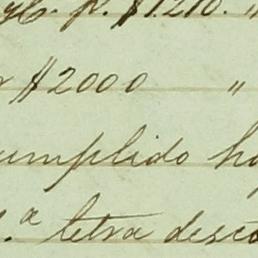 p. $1.210. "
$2000 "
umplido ho
.ª letra desco